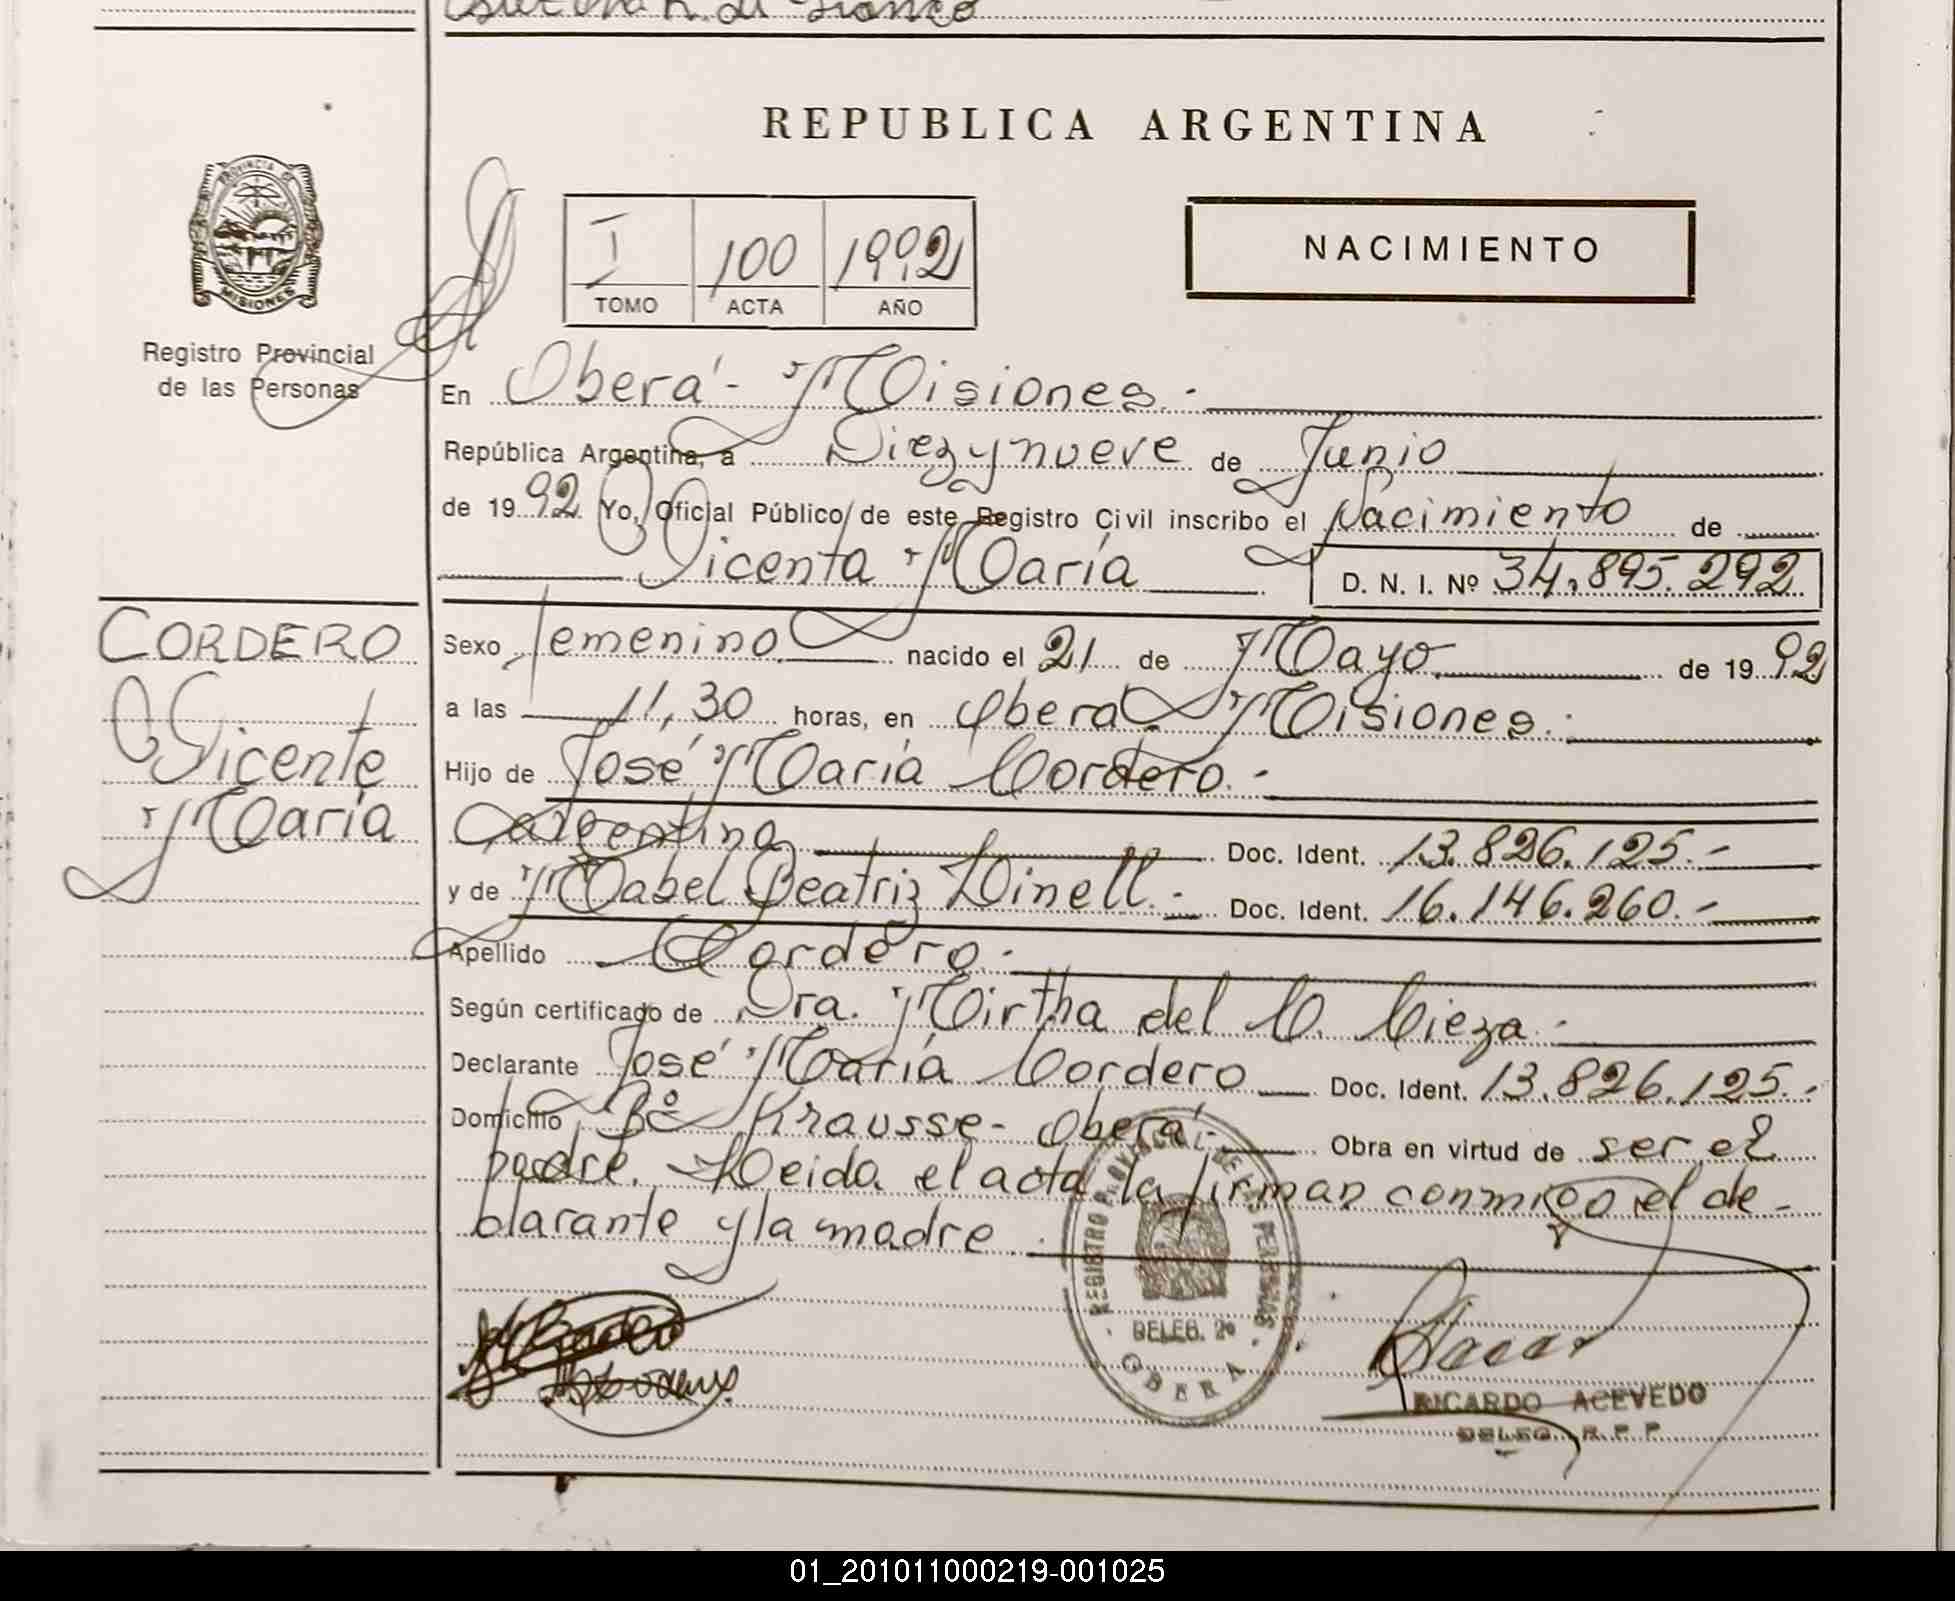 REPUBLICA ARGENTINA
PROVINCIA DE
MISIONES
Registro Provincial
de las Personas
I 100 1992
TOMO ACTA AÑO
NACIMIENTO
En Oberá - Misiones.-
República Argentina, a Diez y nueve de Junio
de 1992 Yo, Oficial Público de este Registro Civil inscribo el Nacimiento de
Vicenta María D. N. I. Nº 34.895.292
CORDERO
Vicente
María
Sexo femenino nacido el 21 de Mayo de 1992
a las 11,30 horas, en Oberá Misiones.
Hijo de José María Cordero.-
Argentino Doc. Ident. 13.826.125.-
y de Mabel Beatriz Dinell.- Doc. Ident. 16.146.260.-
Apellido Cordero.-
Según certificado de Dra. Mirtha del C. Cieza.-
Declarante José María Cordero Doc. Ident. 13.826.125.-
Domicilio Bº Krausse - Oberá - Obra en virtud de ser el
padre. Leida el acta la firman conmigo el de-
clarante y la madre.
REGISTRO PROVINCIAL DE LAS PERSONAS
DELEG. 2º
OBERA
RICARDO ACEVEDO
DELEG. R. P. P.
01_201011000219-001025